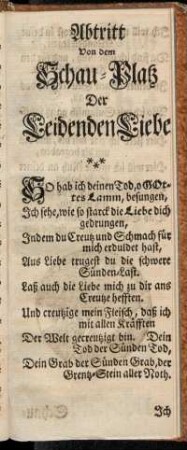 Abtritt
Von dem
Schau-Platz
Der
Leidenden Liebe
***
SO hab ich deinen Tod, o GOt-
tes Lamm, besungen,
Ich sehe, wie so starck die Liebe dich
gedrungen,
Indem du Creutz und Schmach für
mich erduldet hast,
Aus Liebe trugest du die schwere
Sünden-Last.
Laß auch die Liebe mich zu dir ans
Creutze hefften.
Und creutzige mein Fleisch, daß ich
mit allen Kräfften
Der Welt gecreutzigt bin. Dein
Tod der Sünden Tod,
Dein Grab der Sünden Grab, der
Grentz-Stein aller Noth.
Ich